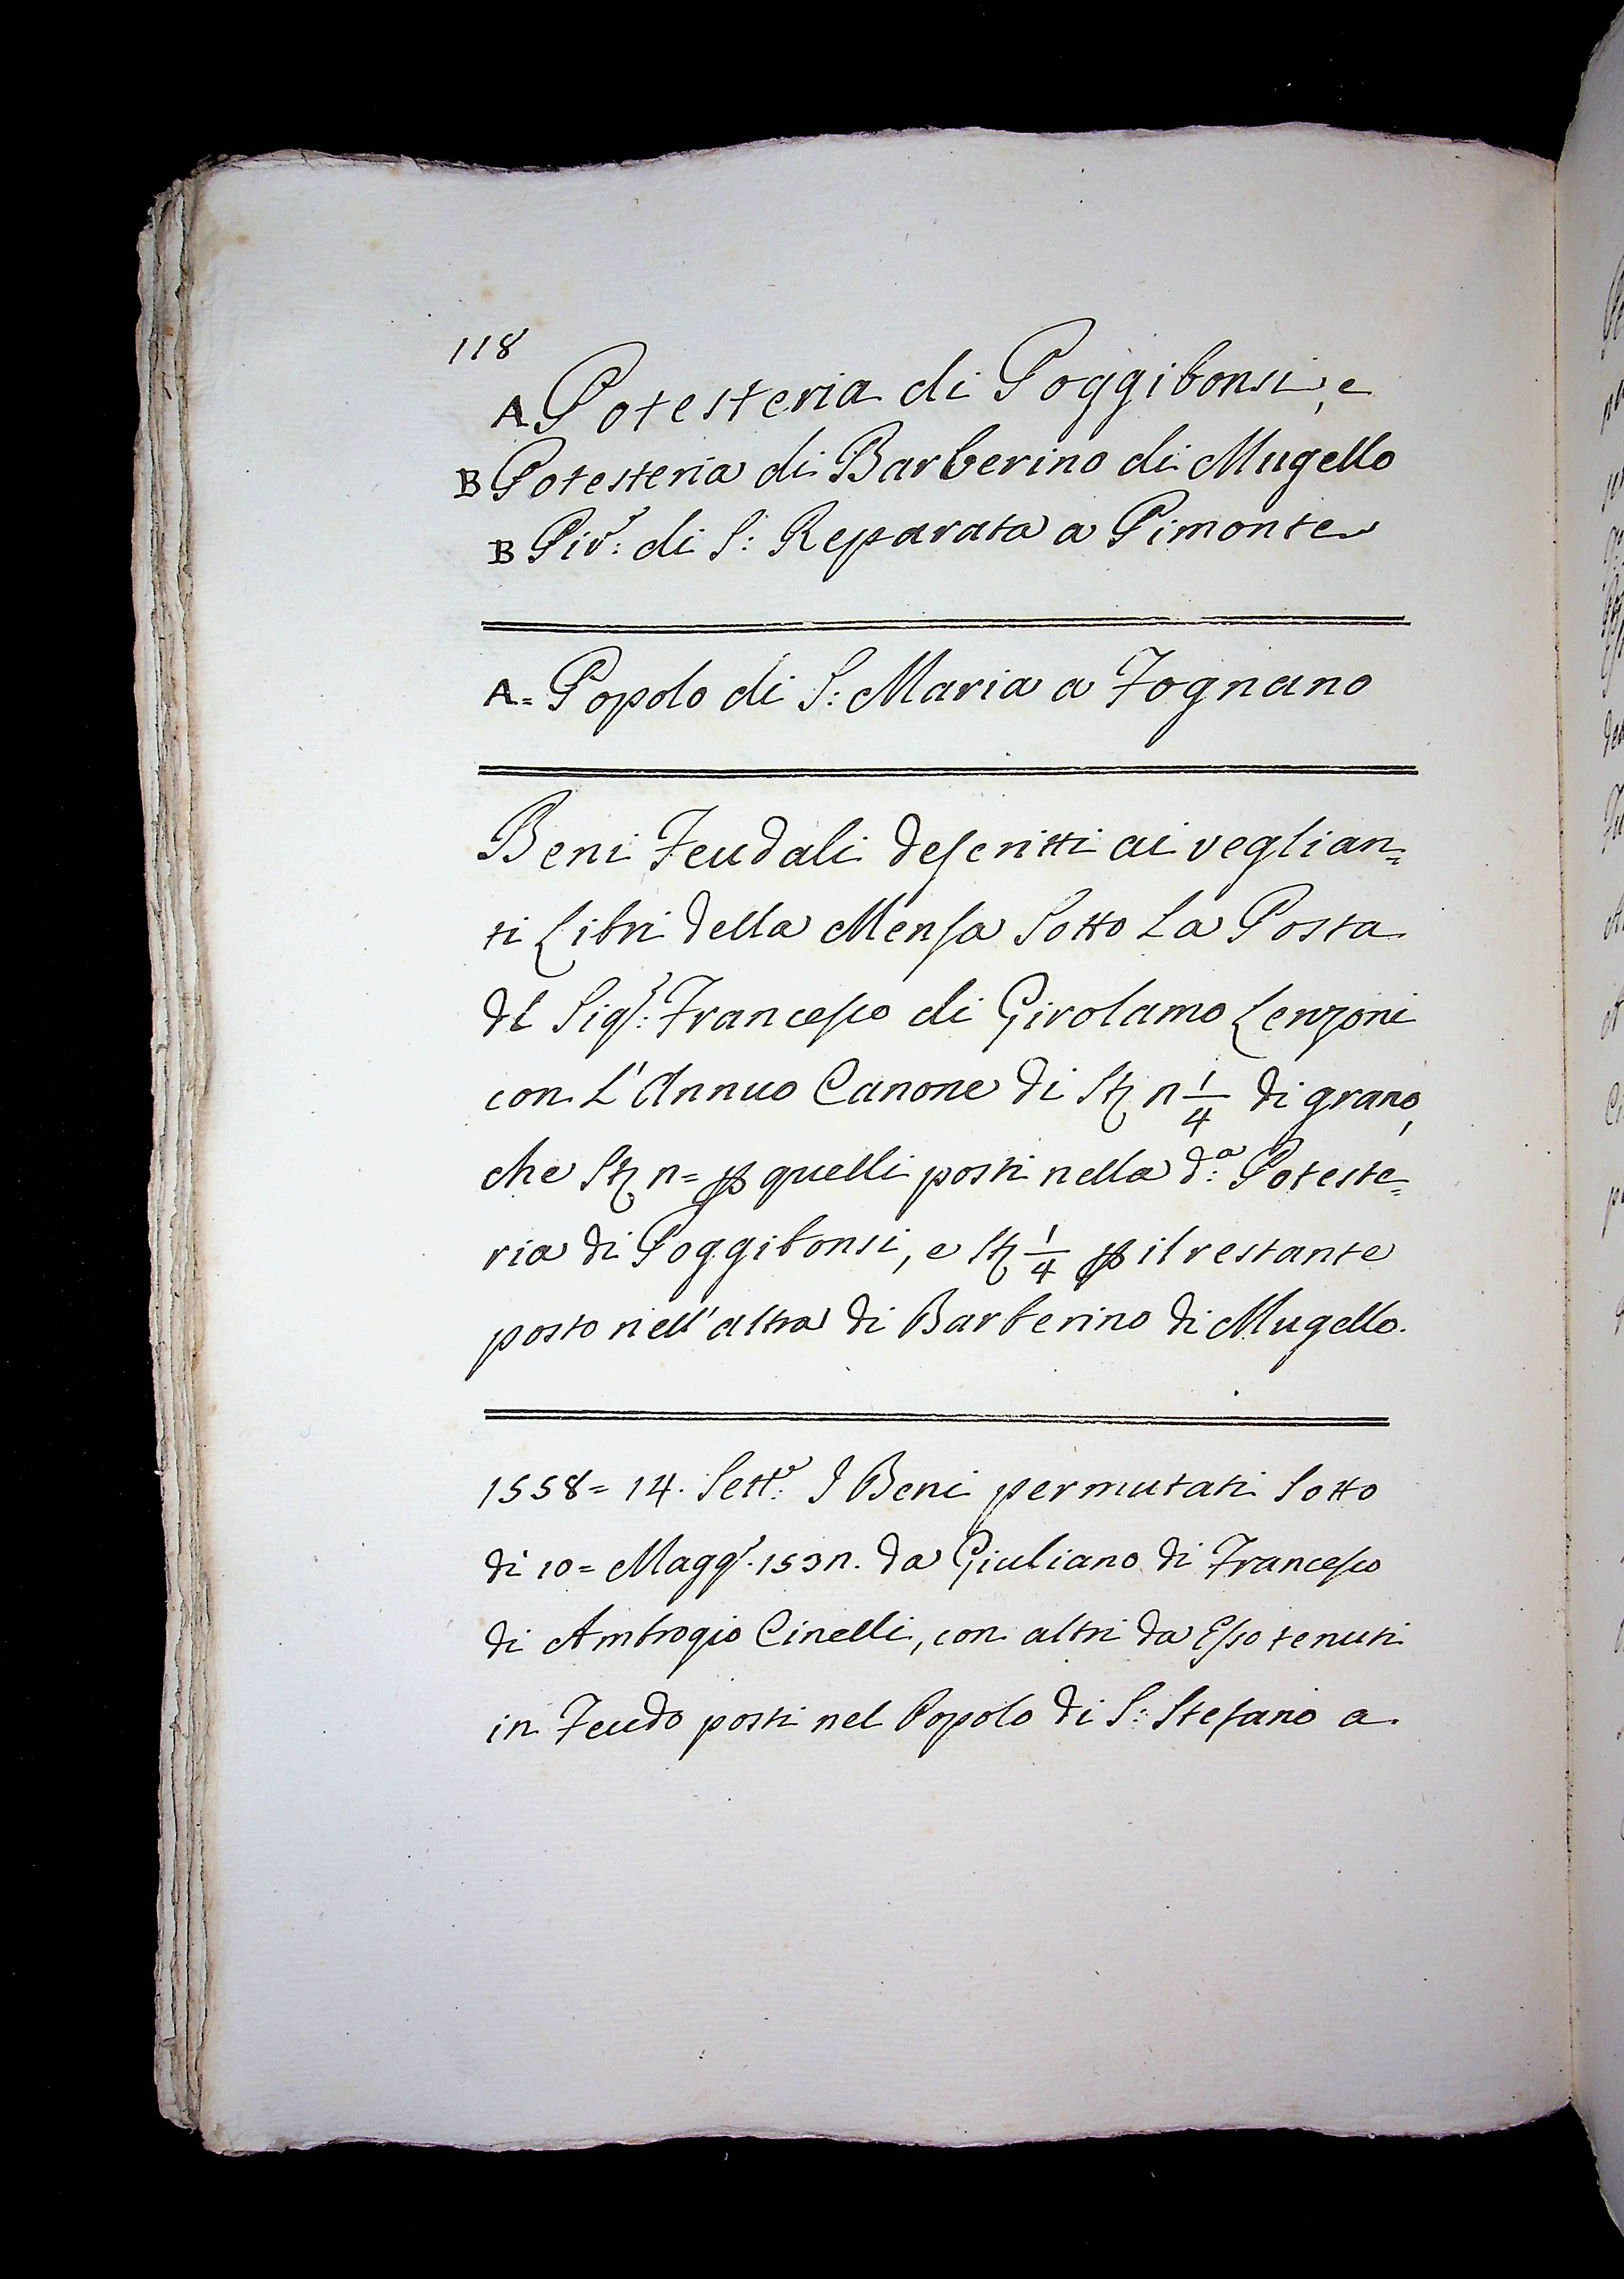 118
A Potesteria di Poggibonsi, e
B Potesteria di Barberino di Mugello
B Piv.e: di S: Reparata a Pimonte
A= Popolo di S: Maria a Fognano
Beni Feudali descritti ai veglian=
ti Libri della Mensa Sotto La Posta
del Sig.r: Francesco di Girolamo Lenzoni
con L'Annuo Canone di St n 1/4 di grano,
che St n= p quelli posti nella d.a: Poteste=
ria di Poggibonsi, e St 1/4 p il restante
posto nell'altra di Barberino di Mugello.
1558= 14. Sett.e: I Beni permutati Sotto
dì 10= Magg.o 153n. da Giuliano di Francesco
di Ambrogio Cinelli, con altri da Esso tenuti
in Feudo posti nel Popolo di S: Stefano a